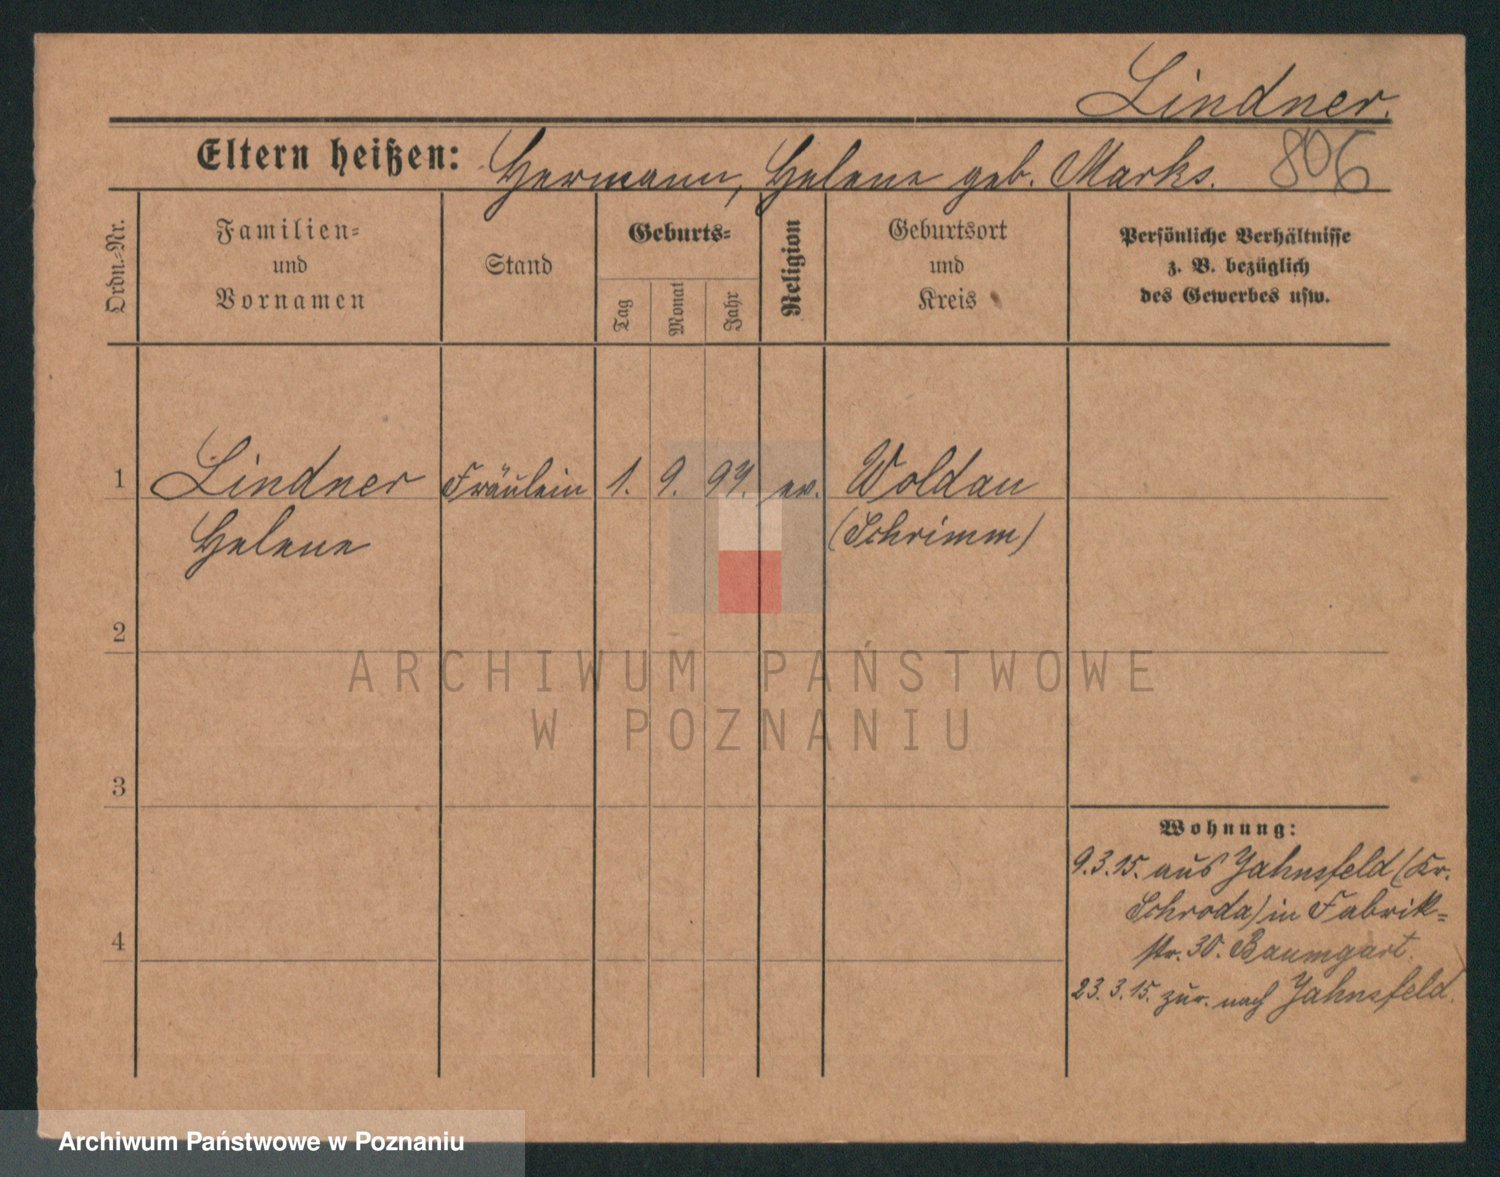 Lindner.
Eltern heißen: Hermann, Helene geb. Marks. 806
Ordn.-Nr.
Familien-
und
Vornamen
Stand
Geburts-
Tag
Monat
Jahr
Religion
Geburtsort
und
Kreis
Persönliche Verhältnisse
z. B. bezüglich
des Gewerbes usw.
1 Lindner Fräulein 1. 9. 94. ev. Woldau
Helene (Schrimm)
2
ARCHIWUM PAŃSTWOWE
W POZNANIU
3
Wohnung:
9.3.15. aus Jahnsfeld (Kr.
Schroda) in Fabrik-
4
str. 30. Baumgart.
23.3.15. zur. nach Jahnsfeld.
Archiwum Państwowe w Poznaniu